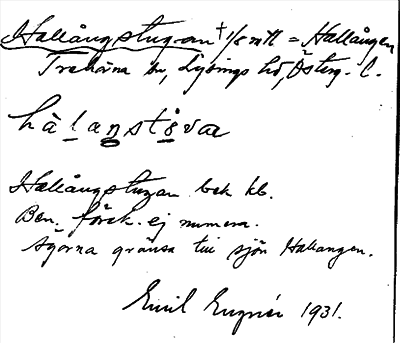 Hallångstugan † 1/8 mtl = Hallången
Trehörna sn, Lysings hd, Österg. l.
hàlaŋstèvaɷ
Hallångstugan bek kb.
Ben. förek. ej numera.
Ägorna gränsa till sjön Hallangen.
Emil 1931.